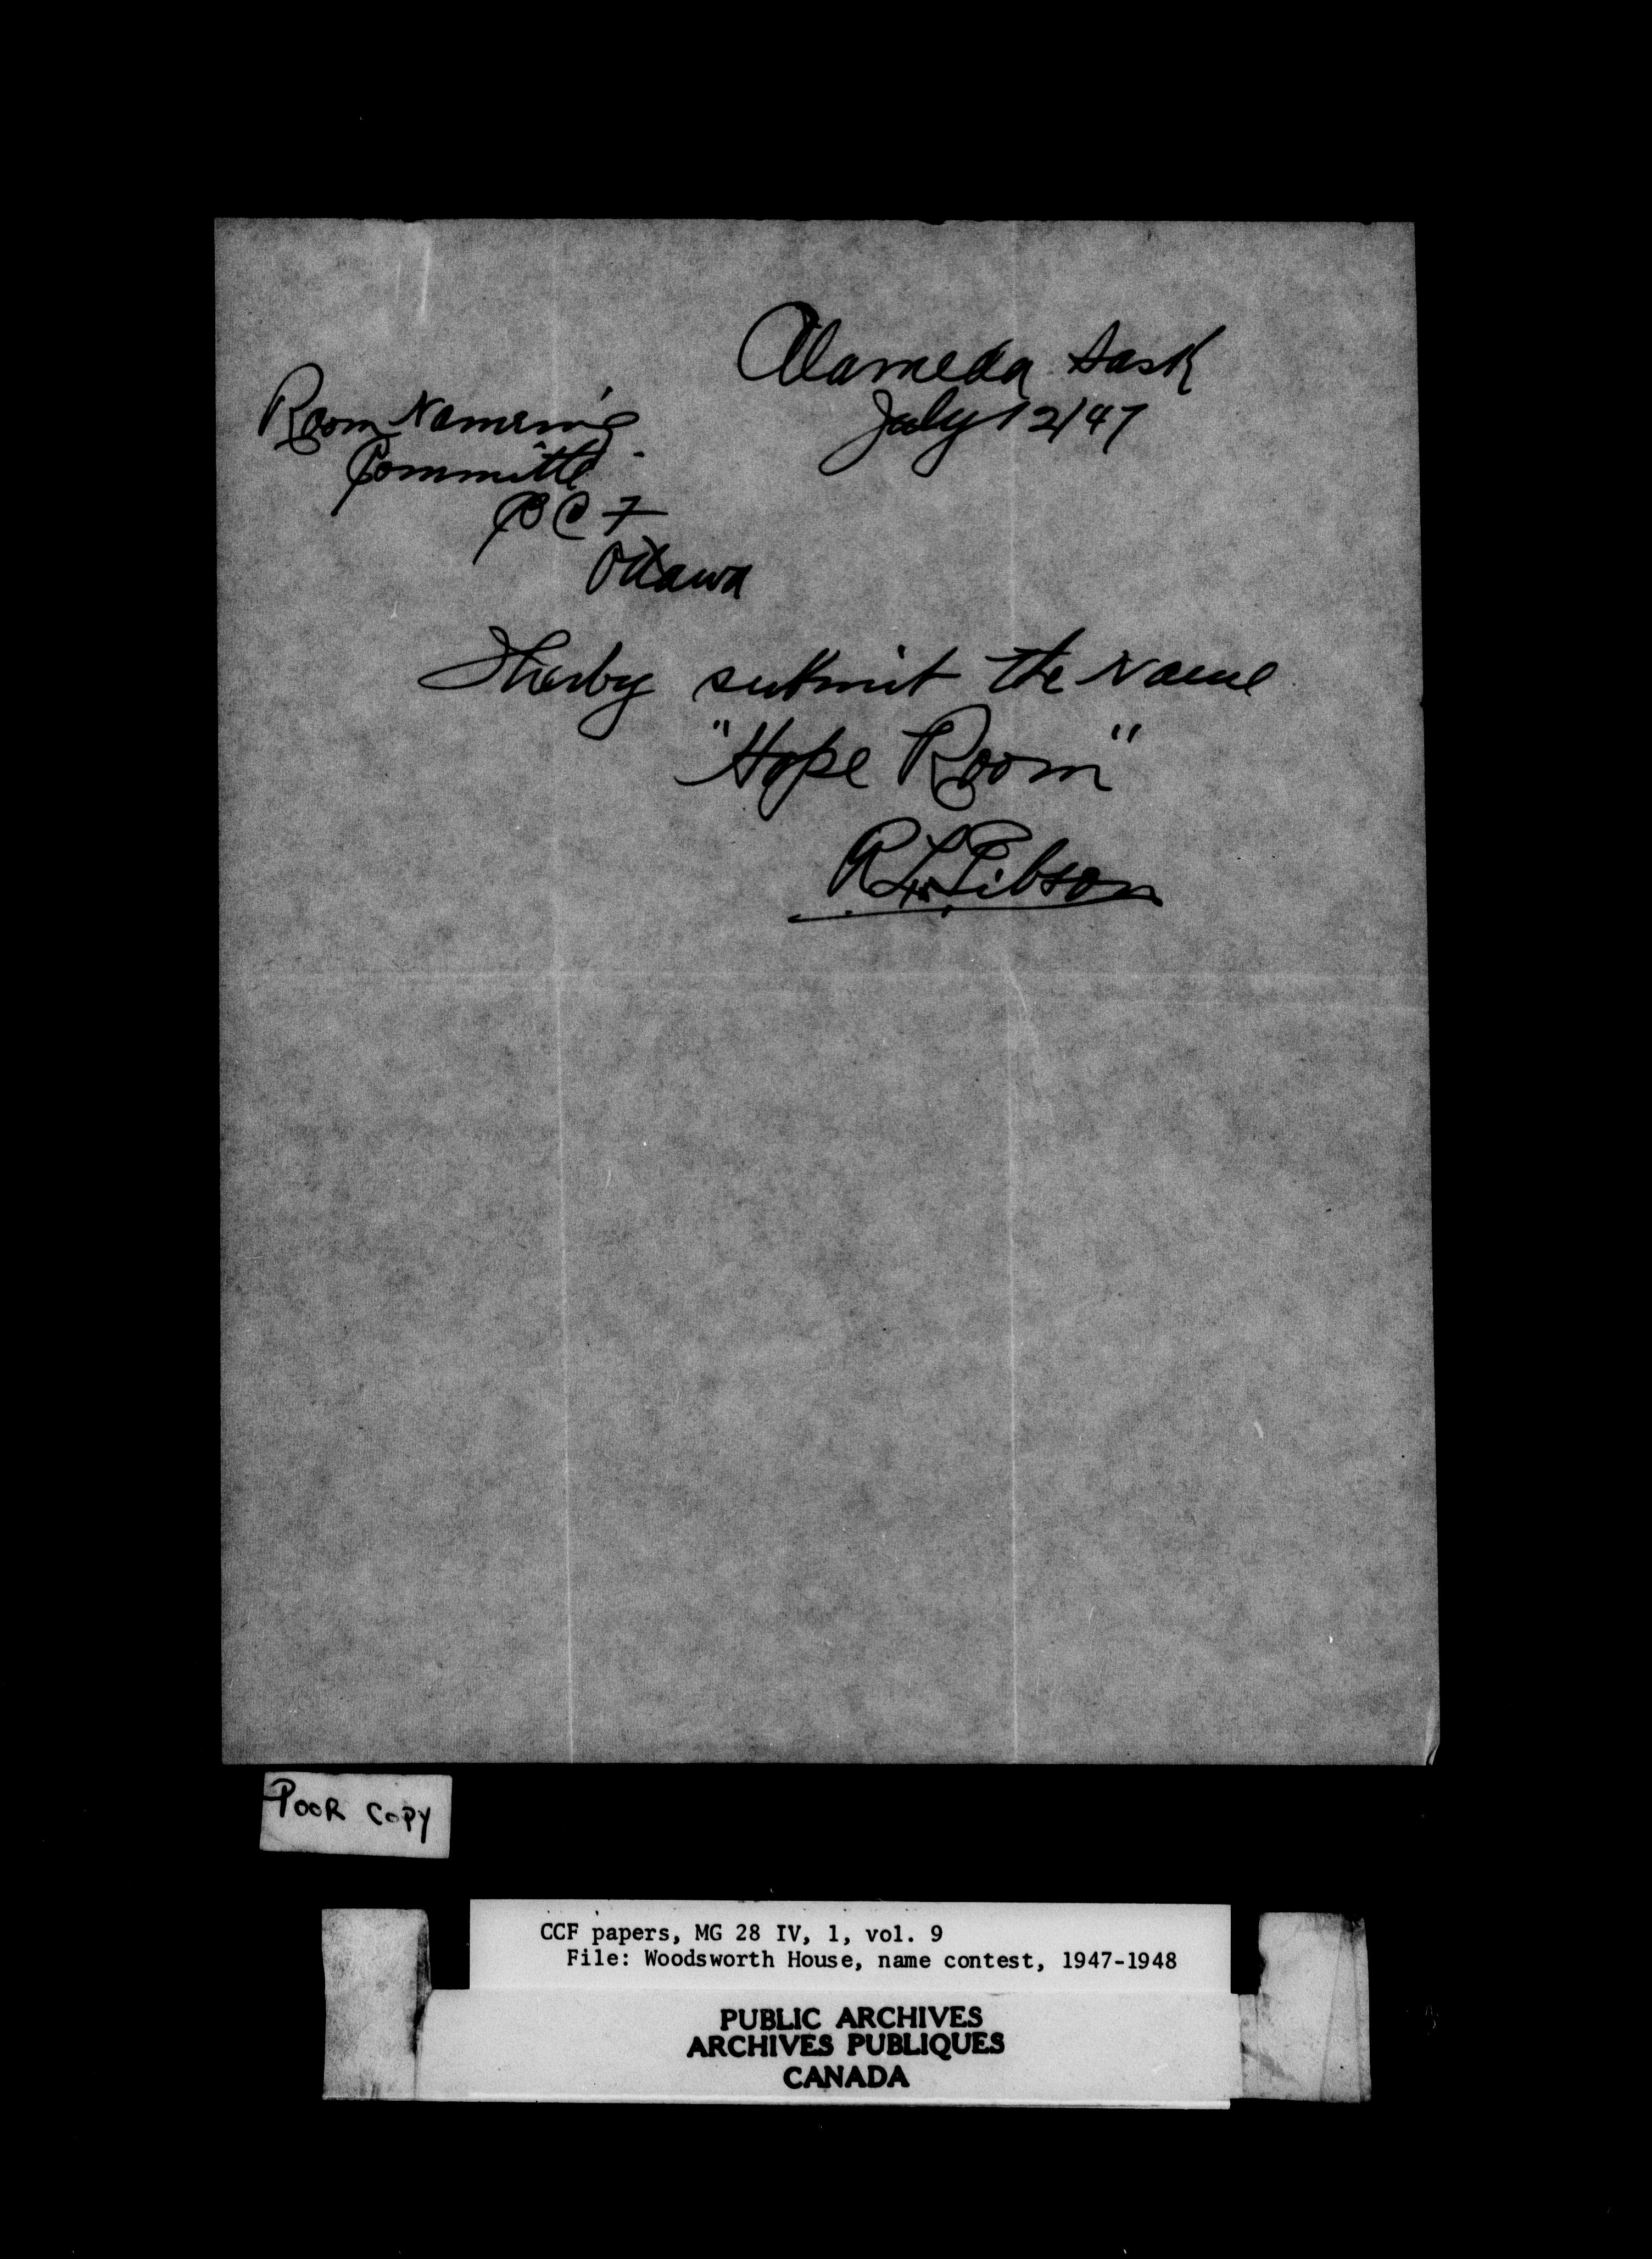 Alameda Sask
July 12/47
Room Nameing
Committe
CCF
Ottawa
I herby submit the Name
"Hope Room"
R L Gibson
POOR COPY
CCF papers, MG 28 IV, 1, vol. 9
File: Woodsworth House, name contest, 1947-1948
PUBLIC ARCHIVES
ARCHIVES PUBLIQUES
CANADA